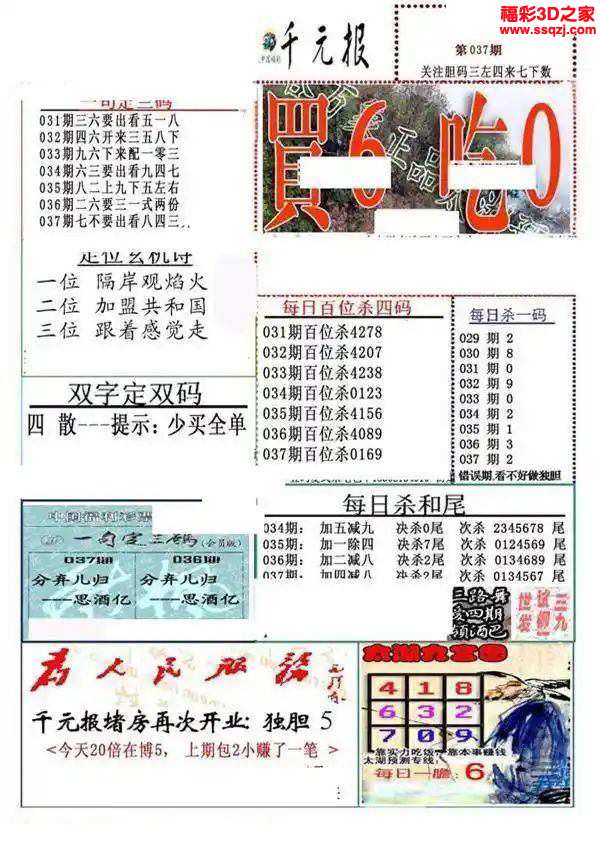 福彩3D之家
www.ssqzj.com
千元报
第037期
关注胆码三左四来七下数
買6 吃0
一句定三码
031期三六要出看五一八
032期四六开来三五八下
033期九六下来配一零三
034期六三要出看九四七
035期八二上九下五左右
036期二六要三一式两份
037期七不要出看八四三
定位玄机诗
一位 隔岸观焰火
二位 加盟共和国
三位 跟着感觉走
每日百位杀四码
031期百位杀4278
032期百位杀4207
033期百位杀4238
034期百位杀0123
035期百位杀4156
036期百位杀4089
037期百位杀0169
每日杀一码
029 期 2
030 期 8
031 期 0
032 期 9
033 期 0
034 期 2
035 期 1
036 期 3
037 期 2
错误期,看不好做独胆
双字定双码
四 散---提示: 少买全单
每日杀和尾
034期: 加五减九 决杀0尾 次杀 2345678 尾
035期: 加一除四 决杀7尾 次杀 0124569 尾
036期: 加二减八 决杀5尾 次杀 0134689 尾
037期: 加四减八 决杀2尾 次杀 0134567 尾
一句定三码(会员版)
037期 036期
分弃儿归 分弃儿归
——思酒亿 ——思酒亿
为人民服务
千元报堵房再次开业: 独胆 5
<今天20倍在博5, 上期包2小赚了一笔 >
太湖九宫图
4 1 8
6 3 2
7 0 9
靠实力吃饭,靠本事赚钱
太湖预测专线:
每日一胆: 6